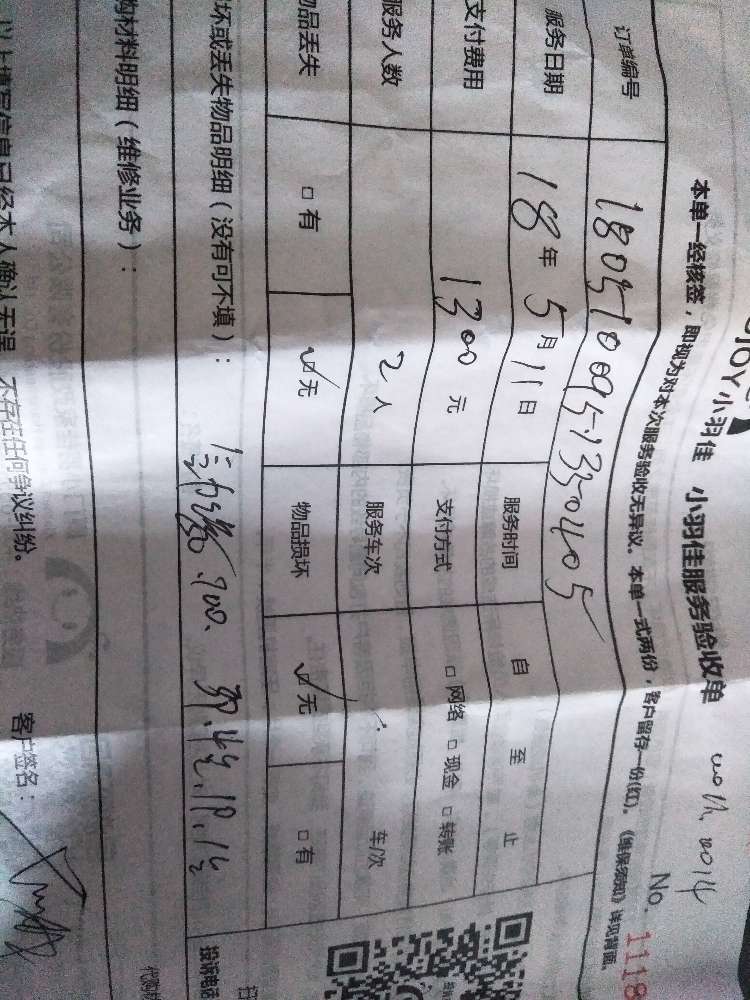 JOY小羽佳 小羽佳服务验收单
No. 1118
本单一经核签，即视为对本次服务验收无异议。本单一式两份，客户留存一份(红)。《维保须知》详见背面。
订单编号 1805100951330405
服务日期 18年5月11日 服务时间 自 至 止
支付费用 1300元 支付方式 □网络 □现金 □转账
服务人数 2人 服务车次 车/次
品丢失 □有 ☑无 物品损坏 ☑无 □有
坏或丢失物品明细（没有可不填）：
购材料明细（维修业务）：
以上填写信息已经本人确认无误，不存在任何争议纠纷。 客户签名：
投诉电话